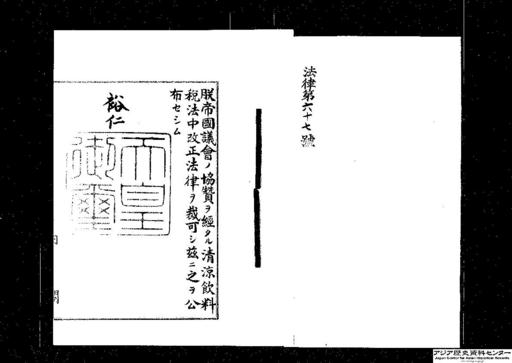 法律第六十七號
朕帝國議會ノ協贊ヲ經タル清涼飮料
税法中改正法律ヲ裁可シ茲ニ之ヲ公
布セシム
裕仁
天皇
御璽
アジア歴史資料センター
Japan Center for Asian Historical Records